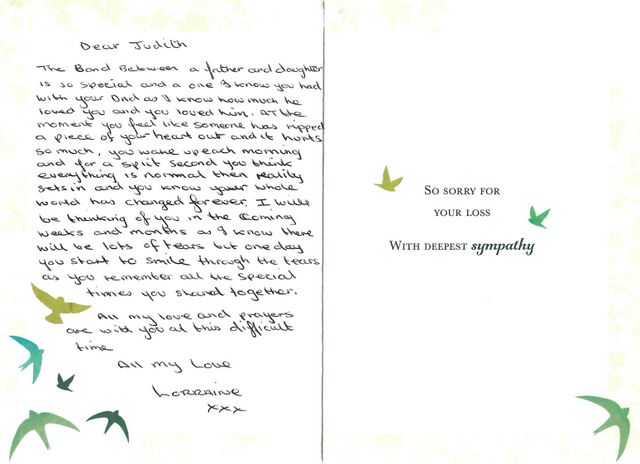 Dear Judith
The Bond Between a father and daughter
is so special and a one I know you had
with your Dad as I know how much he
loved you and you loved him. AT the
moment you feel like someone has ripped
a piece of your heart out and it hurts
so much, you wake up each morning
and for a split second you think
everything is normal then reality
sets in and you know your whole
world has changed forever. I will
be thinking of you in the coming
weeks and months as I know there
will be lots of tears but one day
you start to smile through the tears
as you remember all the special
times you shared together.
All my love and prayers
are with you at this difficult
time
All my Love
LORRAINE
xxx
So sorry for
your loss
With deepest sympathy